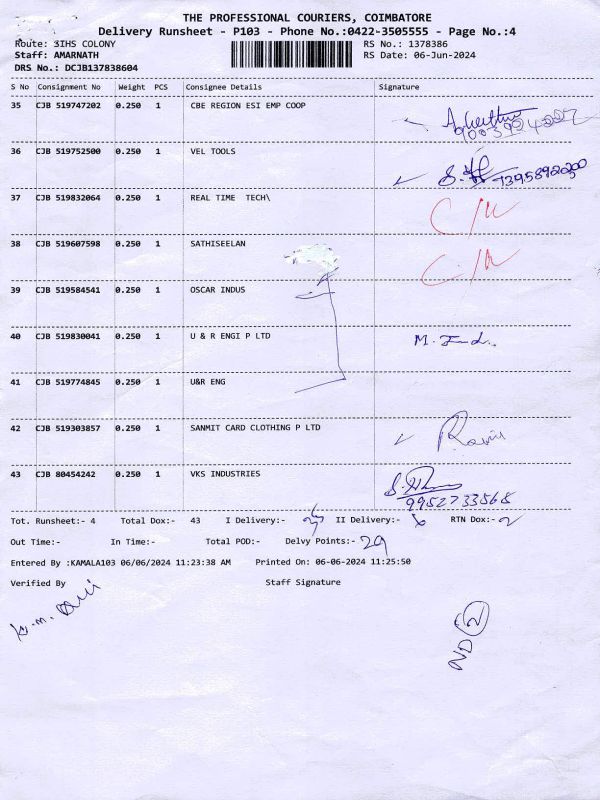 THE PROFESSIONAL COURIERS, COIMBATORE
Delivery Runsheet - P103 - Phone No.:0422-3505555 - Page No.:4
Route: SIHS COLONY RS No.: 1378386
Staff: AMARNATH RS Date: 06-Jun-2024
DRS No.: DCJB137838604
S No Consignment No Weight PCS Consignee Details Signature
35 CJB 519747202 0.250 1 CBE REGION ESI EMP COOP
36 CJB 519752500 0.250 1 VEL TOOLS
37 CJB 519832064 0.250 1 REAL TIME TECH\
38 CJB 519607598 0.250 1 SATHISEELAN
39 CJB 519584541 0.250 1 OSCAR INDUS
40 CJB 519830041 0.250 1 U & R ENGI P LTD
41 CJB 519774845 0.250 1 U&R ENG
42 CJB 519303857 0.250 1 SANMIT CARD CLOTHING P LTD
43 CJB 80454242 0.250 1 VKS INDUSTRIES
9952733568
Tot. Runsheet:- 4 Total Dox:- 43 I Delivery:- II Delivery:- RTN Dox:- 2
Out Time:- In Time:- Total POD:- Delvy Points:- 29
Entered By :KAMALA103 06/06/2024 11:23:38 AM Printed On: 06-06-2024 11:25:50
Verified By Staff Signature
ND 2